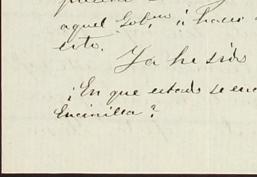 aquel Gobno, i hacer
esto.
Ya he sido
¿En que estado se enc
Encinilla?